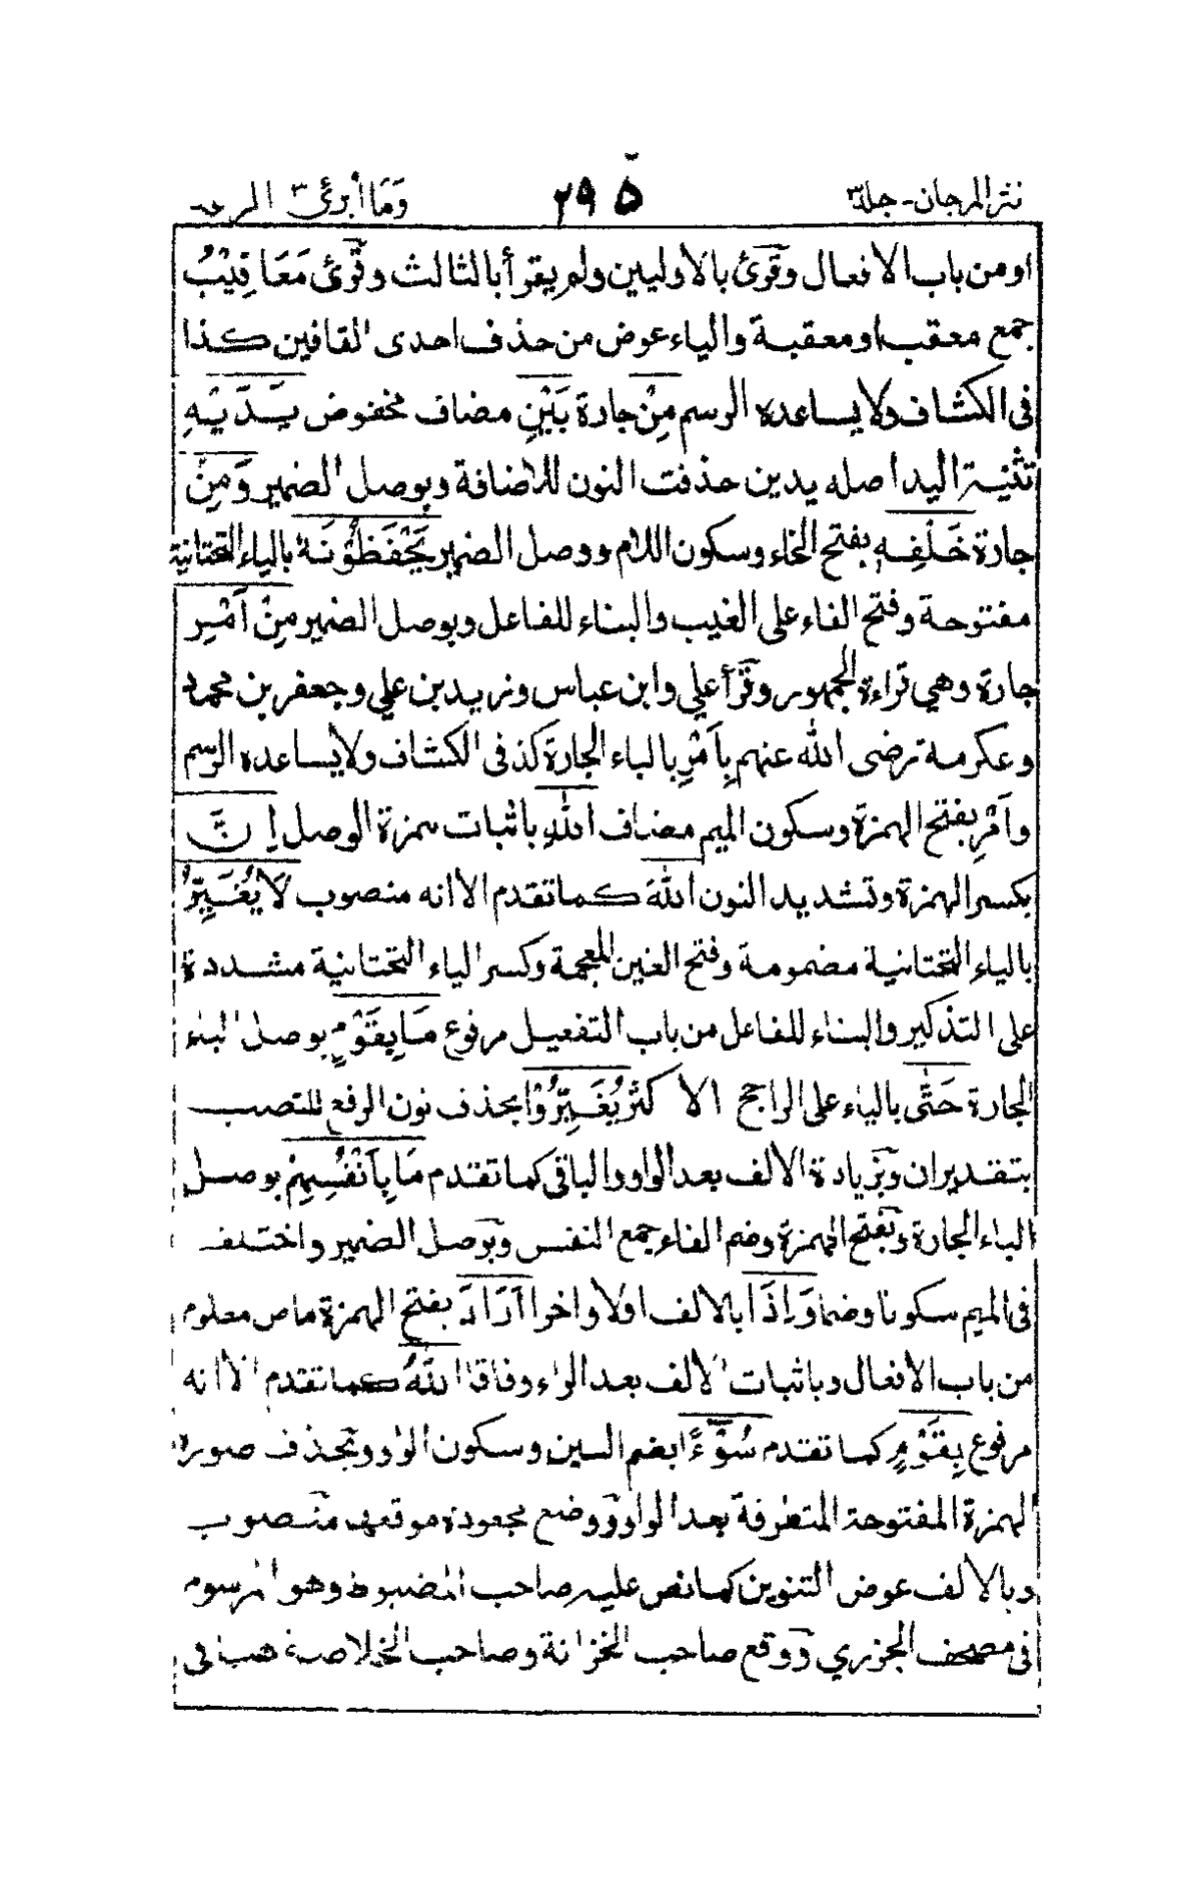 نثر المرجان - جلد ٣ ٢٩٥ وَمَا أبرئ ٣ الرعد
او من باب الافعال وقرئ بالاوليين ولم يقرأ بالثالث وقرئ مَعَاقِيْبُ
جمع معقب او معقبة والياء عوض من حذف احدى القافين كذا
فى الكشاف ولا يساعده الرسم مِنْ جارة بَيْنِ مضاف مخفوض يَدَيْهِ
تثنية اليد اصله يدين حذفت النون للاضافة وبوصل الضمير وَمِنْ
جارة خَلْفِهٖ بفتح الخاء وسكون اللام ووصل الضمير يَحْفَظُوْنَهٗ بالياء التحتانية
مفتوحة وفتح الفاء على الغيب والبناء للفاعل وبوصل الضمير مِنْ اَمْرِ
جارة وهي قراءة الجمهور وقرأ علي وابن عباس وزيد بن علي وجعفر بن محمد
وعكرمة رضى الله عنهم بِاَمْرِ بالباء الجارة كذ فى الكشاف ولا يساعده الرسم
واَمْرِ بفتح الهمزة وسكون الميم مضاف اللّٰهِ باثبات همزة الوصل اِنَّ
بكسر الهمزة وتشديد النون اللّٰهَ كما تقدم الا انه منصوب لَا يُغَيِّرُ
بالياء التحتانية مضمومة وفتح الغين المعجمة وكسر الياء التحتانية مشددة
على التذكير والبناء للفاعل من باب التفعيل مرفوع مَا بِقَوْمٍ بوصل الباء
الجارة حَتّٰى بالياء على الراجح الاكثر يُغَيِّرُوْا بحذف نون الرفع للنصب
بتقدير ان وبزيادة الالف بعد الواو والباقى كما تقدم مَا بِاَنْفُسِهِمْ بوصل
الباء الجارة وبفتح الهمزة وضم الفاء جمع النفس وبوصل الضمير واختلف
فى الميم سكونا وضما وَاِذَا بالالف اولا واخرا اَرَادَ بفتح الهمزة ماض معلوم
من باب الافعال وباثبات الالف بعد الراء وفاقا اللّٰهُ كما تقدم الا انه
مرفوع بِقَوْمٍ كما تقدم سُوْٓءًا بضم السين وسكون الواو وبحذف صورة
الهمزة المفتوحة المتطرفة بعد الواو ووضع مجعودة موقعها منصوب
وبالالف عوض التنوين كما نص عليه صاحب المضبوط وهو المرسوم
فى مصحف الجزري ووقع صاحب الخزانة وصاحب الخلاصة هنا فى